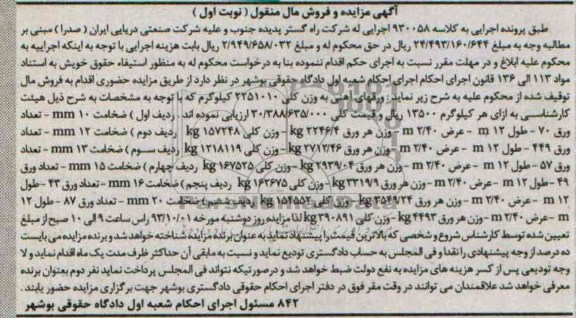 آگهی مزایده و فروش مال منقول ( نوبت اول )
طبق پرونده اجرایی به کلاسه ۹۳۰۰۵۸ اجرایی له شرکت راه گستر پدیده جنوب و علیه شرکت صنعتی دریایی ایران ( صدرا ) مبنی بر
مطالبه وجه به مبلغ ۲۴/۴۹۳/۱۶۰/۶۴۴ ریال در حق محکوم له و مبلغ ۲/۹۴۹/۶۵۸/۰۳۲ ریال بابت هزینه اجرایی با توجه به اینکه اجراییه به
محکوم علیه ابلاغ و در مهلت مقرر نسبت به اجرای حکم اقدام ننموده بنا به درخواست محکوم له به منظور استیفاء حقوق خویش به استناد
مواد ۱۱۳ الی ۱۳۶ قانون اجرای احکام اجرای احکام شعبه اول دادگاه حقوقی بوشهر در نظر دارد از طریق مزایده حضوری اقدام به فروش مال
توقیف شده از محکوم علیه به شرح زیر نماید: ورقهای آهنی به وزن کلی ۲۲۵۱۰۱۰ کیلوگرم که با توجه به مشخصات به شرح ذیل هیئت
کارشناسی به ازای هر کیلوگرم ۱۳۵۰۰ ریال و قیمت کلی ۳۰/۳۸۸/۶۳۵/۰۰۰ ارزیابی نموده اند. ردیف اول ) ضخامت ۱۰ mm - تعداد
ورق ۷۰ - طول ۱۲ m - عرض ۲/۴۰ m - وزن هر ورق ۲۲۴۶/۴ kg - وزن کلی ۱۵۷۲۴۸ kg ردیف دوم ) ضخامت ۱۲ mm - تعداد
ورق ۴۴۹ - طول ۱۲ m - عرض ۲/۴۰ m - وزن هر ورق ۲۷۱۳/۴۶ kg - وزن کلی ۱۲۱۸۱۱۹ kg ردیف سوم ) ضخامت ۱۳ mm - تعداد
ورق ۵۷ - طول ۱۲ m - عرض ۲/۴۰ m - وزن هر ورق ۲۹۳۹/۰۴ kg - وزن کلی ۱۶۷۵۲۵ kg ردیف چهارم ) ضخامت ۱۵ mm - تعداد ورق
۴۹ - طول ۱۲ m - عرض ۲/۴۰ m - وزن هر ورق ۳۳۱۹/۹ kg - وزن کلی ۱۶۲۶۷۵ kg ردیف پنجم ) ضخامت ۱۶ mm - تعداد ورق ۴۳ - طول
۱۲ m - عرض ۲/۴۰ m - وزن هر ورق ۳۵۹۴/۲۴ kg - وزن کلی ۱۵۴۵۵۲ kg ردیف ششم ) ضخامت ۲۰ mm - تعداد ورق ۸۷ - طول ۱۲
m - عرض ۲/۴۰ m - وزن هر ورق ۴۴۹۳ kg - وزن کلی ۳۹۰۸۹۱ kg لذا مزایده روز دوشنبه مورخه ۹۳/۱۰/۰۱ راس ساعت ۹ الی ۱۰ صبح از مبلغ
تعیین شده توسط کارشناس شروع و شخصی که بالاترین قیمت را پیشنهاد نماید به عنوان برنده مزایده شناخته خواهد شد و برنده مزایده می بایست
ده درصد از وجه پیشنهادی را نقدا و فی المجلس به حساب دادگستری تودیع نماید و نسبت به مابقی آن حداکثر ظرف مدت یک ماه اقدام نماید و لا
وجه تودیعی پس از کسر هزینه های مزایده به نفع دولت ضبط خواهد شد و در صورتیکه نتواند فی المجلس پرداخت نماید نفر دوم بعنوان برنده
معرفی خواهد شد علاقمندان می توانند در وقت مقرر فوق در دفتر اجرای احکام حقوقی دادگستری بوشهر جهت برگزاری مزایده حضور یابند.
۸۴۲ مسئول اجرای احکام شعبه اول دادگاه حقوقی بوشهر